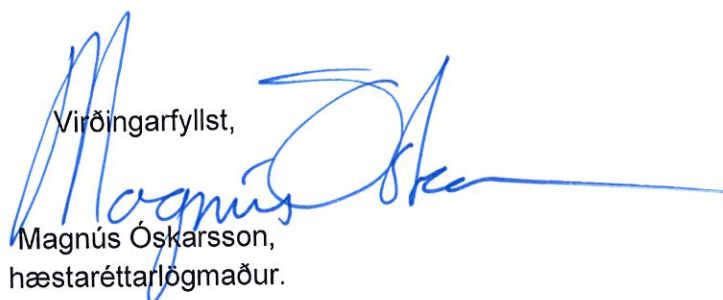 Virðingarfyllst,
Magnús Óska
Magnús Óskarsson,
hæstaréttarlögmaður.